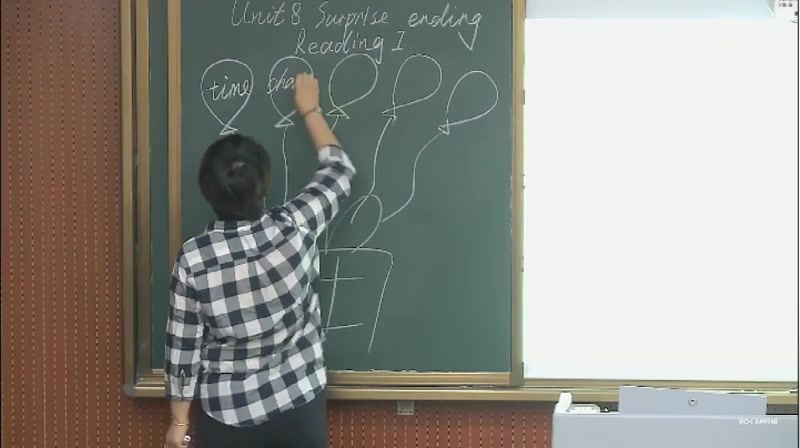 Unit 8 Surprise ending
Reading I
time
cha